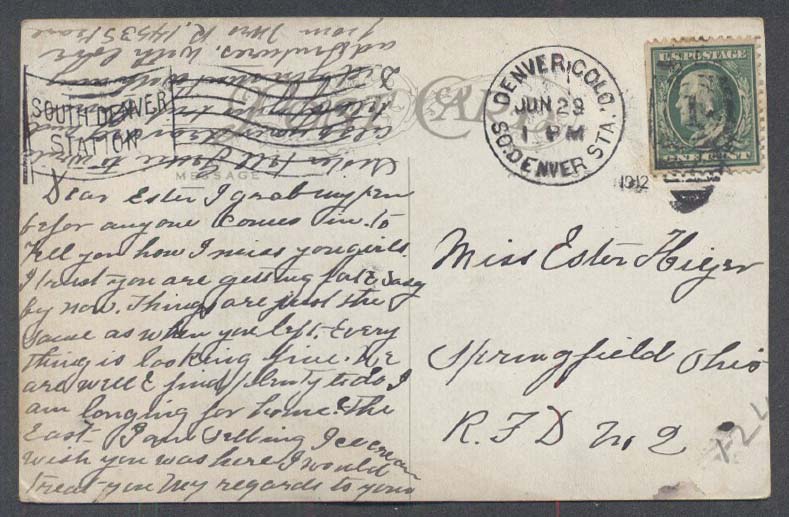 SOUTH DENVER
STATION
POST CARD
DENVER, COLO.
JUN 29
1 PM
SO. DENVER STA.
1912
U.S. POSTAGE
ONE CENT
MESSAGE
Dear Ester I grab my pen
befor anyone comes in. to
Tell you how I miss you girls.
I trust you are getting fat & sasy
by now. Things are just the
same as when you left. Every
thing is looking fine. We
are well & find plenty to do I
am longing for home & the
East I am selling Ice cream
wish you was here I would
treat you My regards to your
Sister Tell to write
with love
from Mrs R. 1453 S
Miss Ester Hiyer
Springfield Ohio
R. F D No 2